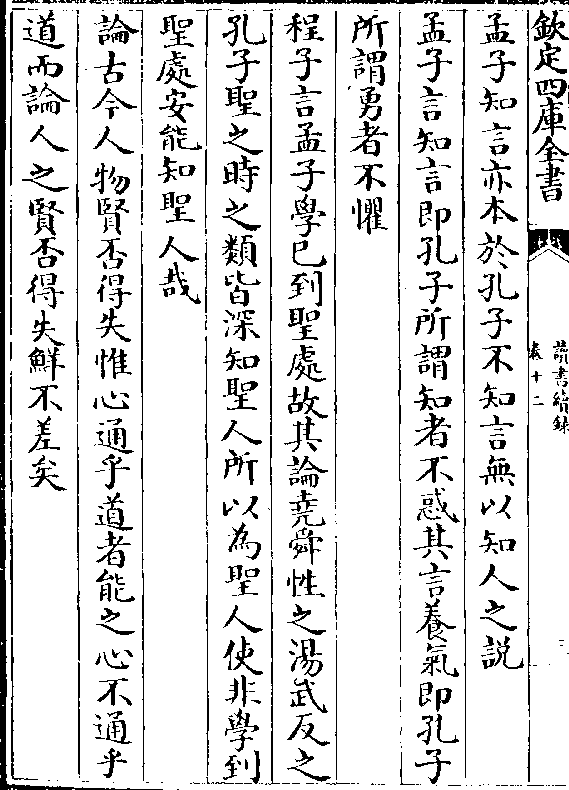 欽定四庫全書
讀書續錄
卷十二
孟子知言亦本於孔子不知言無以知人之説
孟子言知言即孔子所謂知者不惑其言養氣即孔子
所謂勇者不懼
程子言孟子學已到聖處故其論堯舜性之湯武反之
孔子聖之時之類皆深知聖人所以為聖人使非學到
聖處安能知聖人哉
論古今人物賢否得失惟心通乎道者能之心不通乎
道而論人之賢否得失鮮不差矣